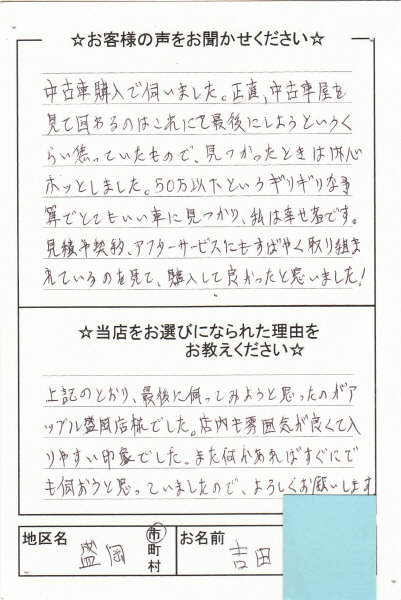 ☆お客様の声をお聞かせください☆
中古車購入で伺いました。正直、中古車屋を
見て回わるのはこれにて最後にしようというく
らい焦っていたもので、見つかったときは内心
ホッとしました。50万以下というギリギリな予
算でとてもいい車に見つかり、私は幸せ者です。
見積や契約、アフターサービスにもすばやく取り組ま
れているのを見て、購入して良かったと思いました!
☆当店をお選びになられた理由を
お教えください☆
上記のとおり、最後に伺ってみようと思ったのがア
ップル盛岡店様でした。店内も雰囲気が良くて入
りやすい印象でした。また何かあればすぐにで
も伺おうと思っていましたので、よろしくお願いします
地区名 盛岡 市町村 お名前 吉田